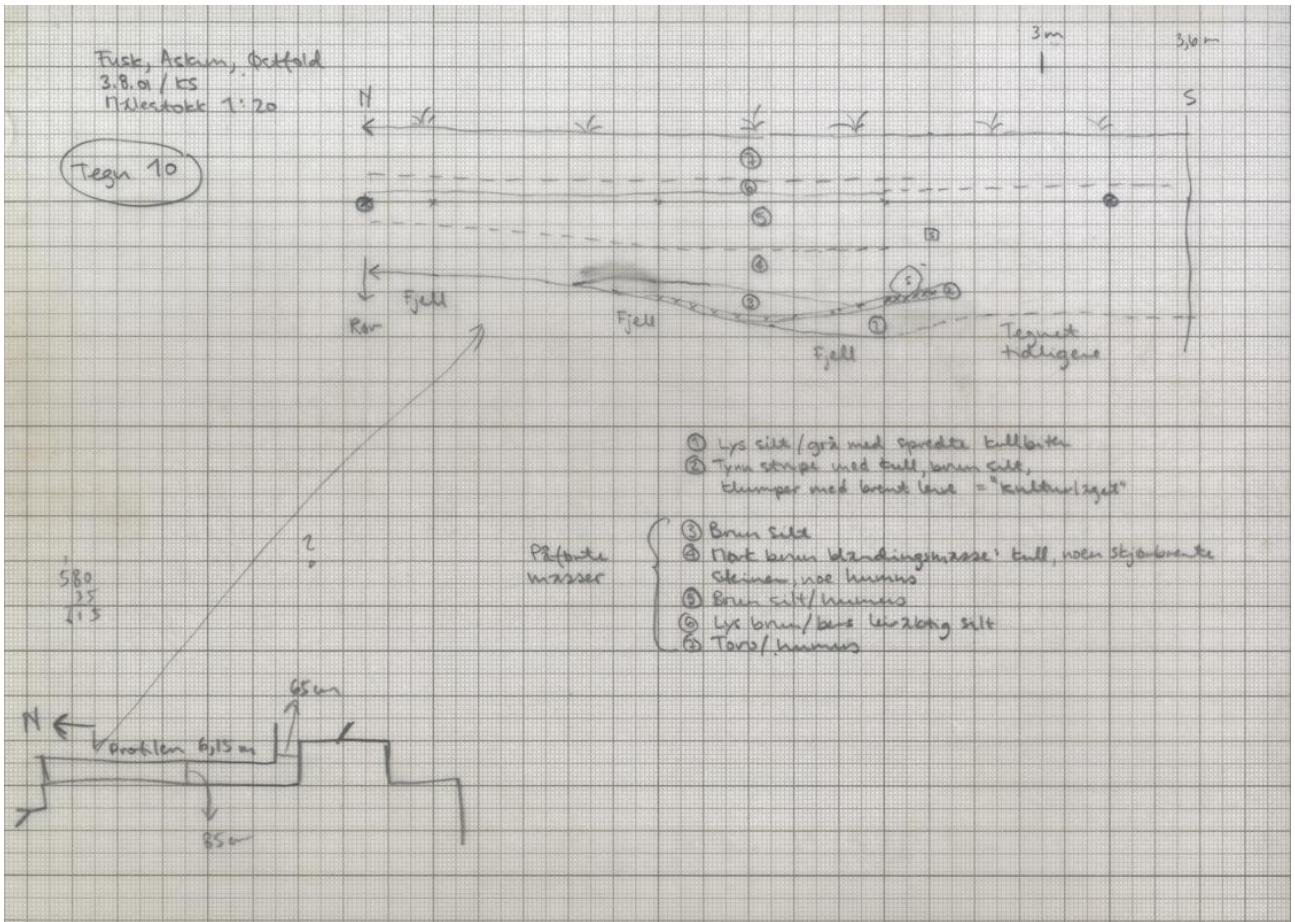 Fusk, Askim, Østfold
3.8.01 / KS
Målestokk 1:20
Tegn 10
3 m
3,6 m
N
S
7
6
5
4
3
2
1
S
Fjell
Rør
Fjell
Fjell
Tegnet
tidligere
① Lys silt / grå med spredte kullbiter
② Tynn stripe med kull, brun silt,
klumper med brent leire = "kulturlaget"
Påførte
masser
③ Brun silt
④ Mørk brun blandingsmasse: kull, noen skjørbrente
steiner, noe humus
⑤ Brun silt/humus
⑥ Lys brun/beis leiraktig silt
⑦ Torv/humus
?
580
35
615
65 cm
N
Profilen 6,15 m
85 cm